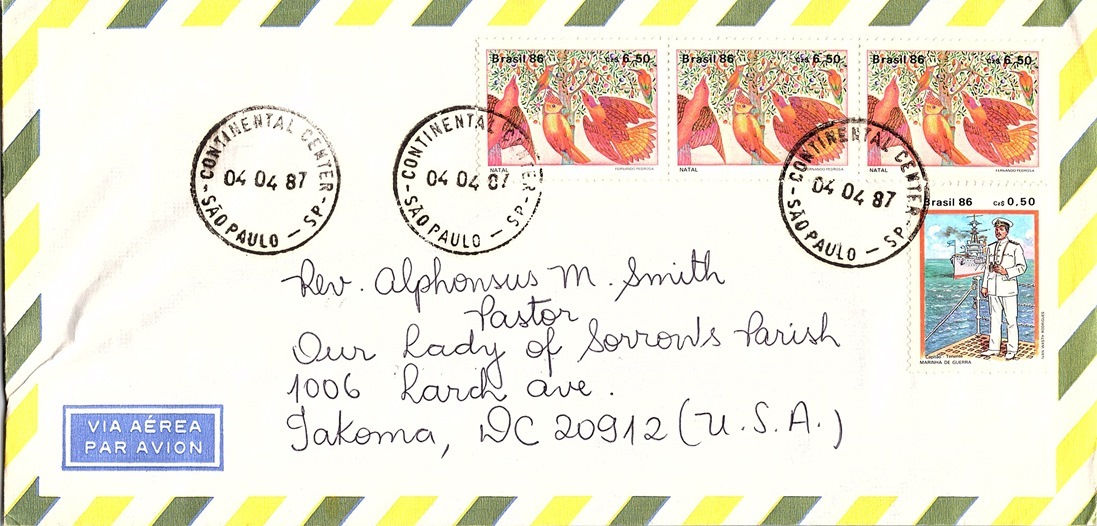 Brasil 86 Cz$ 6,50
NATAL FERNANDO PEDROSA
Brasil 86 Cz$ 6,50
NATAL FERNANDO PEDROSA
Brasil 86 Cz$ 6,50
NATAL FERNANDO PEDROSA
CONTINENTAL CENTER
04 04 87
SÃO PAULO - SP -
CONTINENTAL CENTER
04 04 87
SÃO PAULO - SP -
CONTINENTAL CENTER
04 04 87
SÃO PAULO - SP -
Brasil 86 Cz$ 0,50
Capitão - Tenente
MARINHA DE GUERRA
Rev. Alphonsus M. Smith
Pastor
Our Lady of Sorrows Parish
1006 Larch ave.
Takoma, DC 20912 (U.S.A.)
VIA AÉREA
PAR AVION